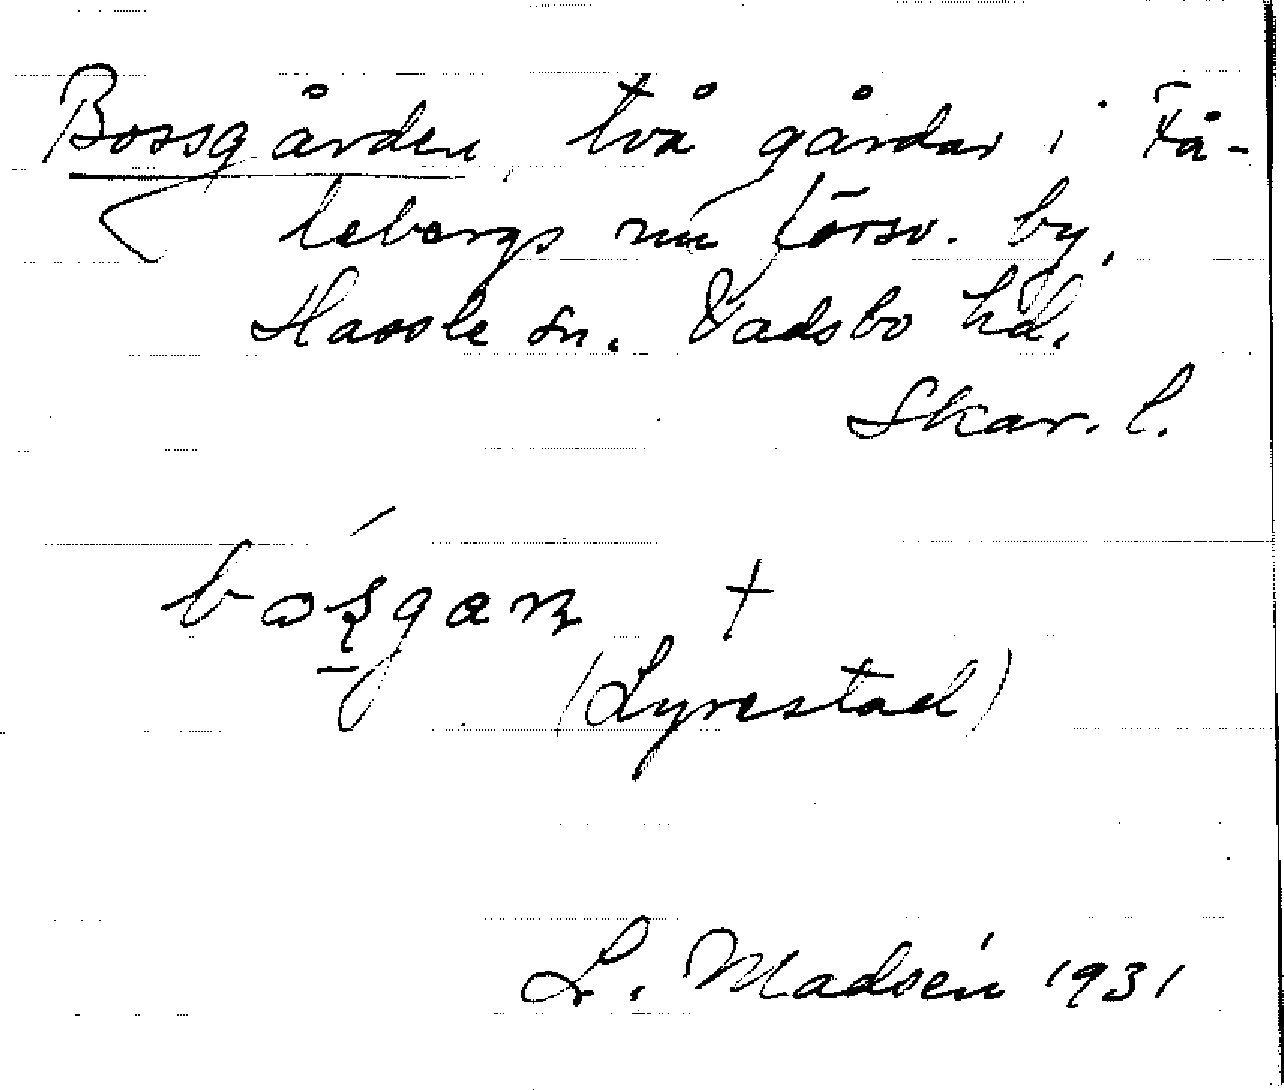 Bossgården två gårdar i Få-
lebergs nu försv. by,
Hassle sn. Vadsbo hd.
Skar. l.
+
(Lyrestad)
L. Madsén 1931